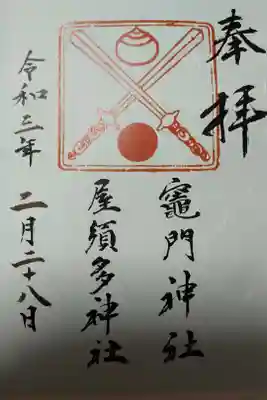 奉拝
竈門神社
屋須多神社
令和三年
二月二十八日